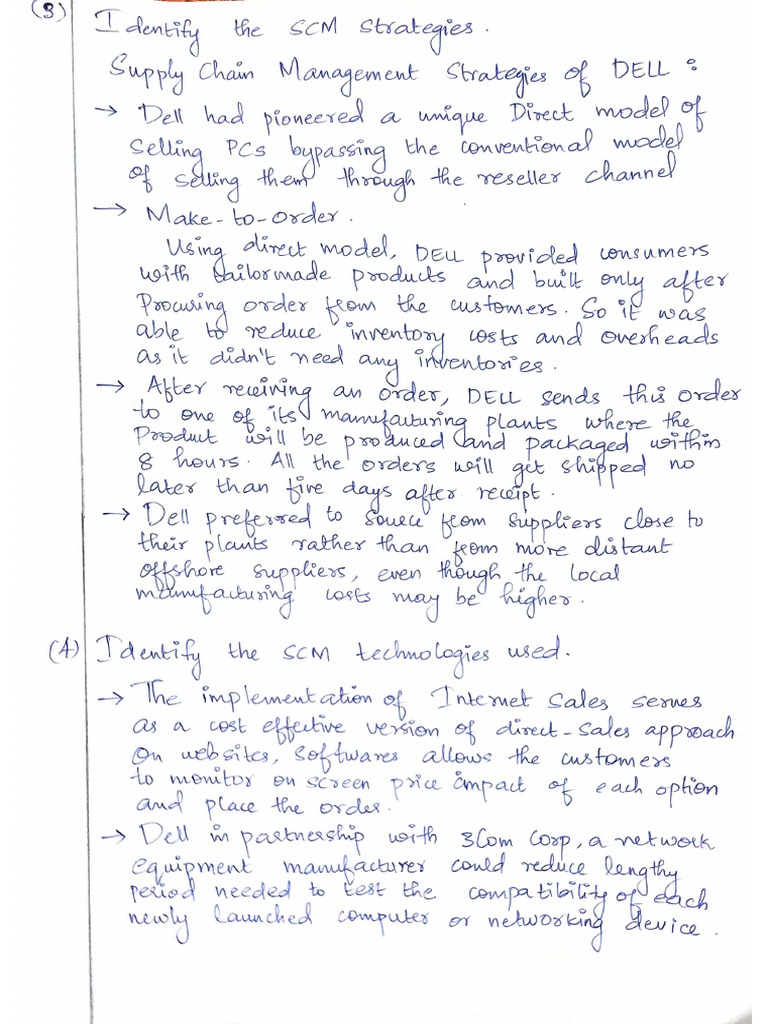 (3) Identify the SCM Strategies.
Supply Chain Management Strategies of DELL :
→ Dell had pioneered a unique Direct model of
selling PCs bypassing the conventional model
of selling them through the reseller channel
→ Make-to-order.
Using direct model, DELL provided consumers
with tailormade products and built only after
procuring order from the customers. So it was
able to reduce inventory costs and overheads
as it didn't need any inventories.
→ After receiving an order, DELL sends this order
to one of its manufacturing plants where the
product will be produced and packaged within
8 hours. All the orders will get shipped no
later than five days after receipt.
→ Dell preferred to source from suppliers close to
their plants rather than from more distant
offshore suppliers, even though the local
manufacturing costs may be higher.
(4) Identify the SCM technologies used.
→ The implementation of Internet Sales serves
as a cost effective version of direct-sales approach
On websites, softwares allows the customers
to monitor on screen price impact of each option
and place the order.
→ Dell in partnership with 3Com Corp, a network
equipment manufacturer could reduce lengthy
period needed to test the compatibility of each
newly launched computer or networking device.